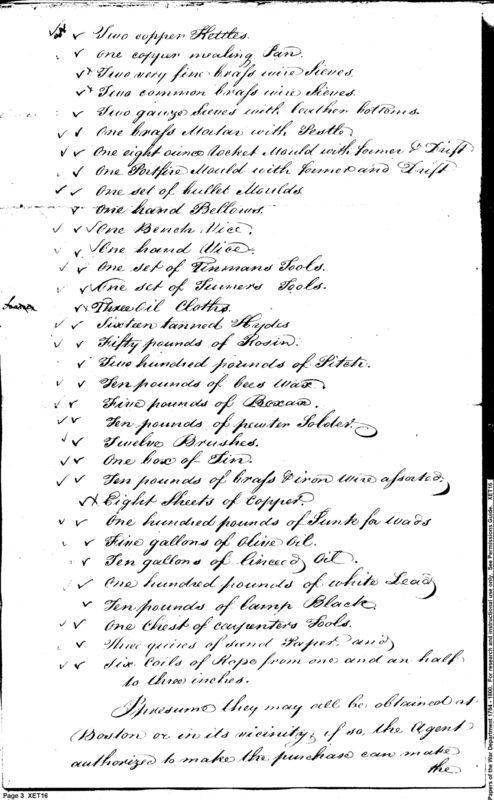 Two copper Kettles.
One copper mealing Pan.
Two very fine brass wire Sieves.
Two common brass wire Sieves.
Two gauze Sieves with leather bottoms.
One brass Mortar with Pestle
One eight ounce Rocket Mould with former & Drift
One Portfire Mould with former and Drift
One set of bullet Moulds
One hand Bellows.
One Bench Vice.
One hand Vice.
One set of Tinmans Tools.
One set of Turners Tools.
Three Oil Cloths.
Sixteen tanned Hydes
Fifty pounds of Rosin.
Two hundred pounds of Pitch.
Ten pounds of bees wax
Five pounds of Boxax.
Ten pounds of pewter Solder.
Twelve Brushes.
One box of Tin.
Ten pounds of brass & iron wire assorted,
Eight Sheets of Copper.
One hundred pounds of Junk for wads
Five gallons of Olive Oil.
Ten gallons of linceed Oil.
One hundred pounds of white Lead
Ten pounds of lamp Black
One Chest of carpenters Tools.
Three quires of sand Paper, and
Six Coils of Rope from one and an half
to three inches.
I presume they may all be obtained at
Boston or in its vicinity, if so, the Agent
authorized to make the purchase can make
the
Page 3 XET16
Papers of the War Department 1784 - 1800. For research and instructional use only. See Permissions Guide. XET16